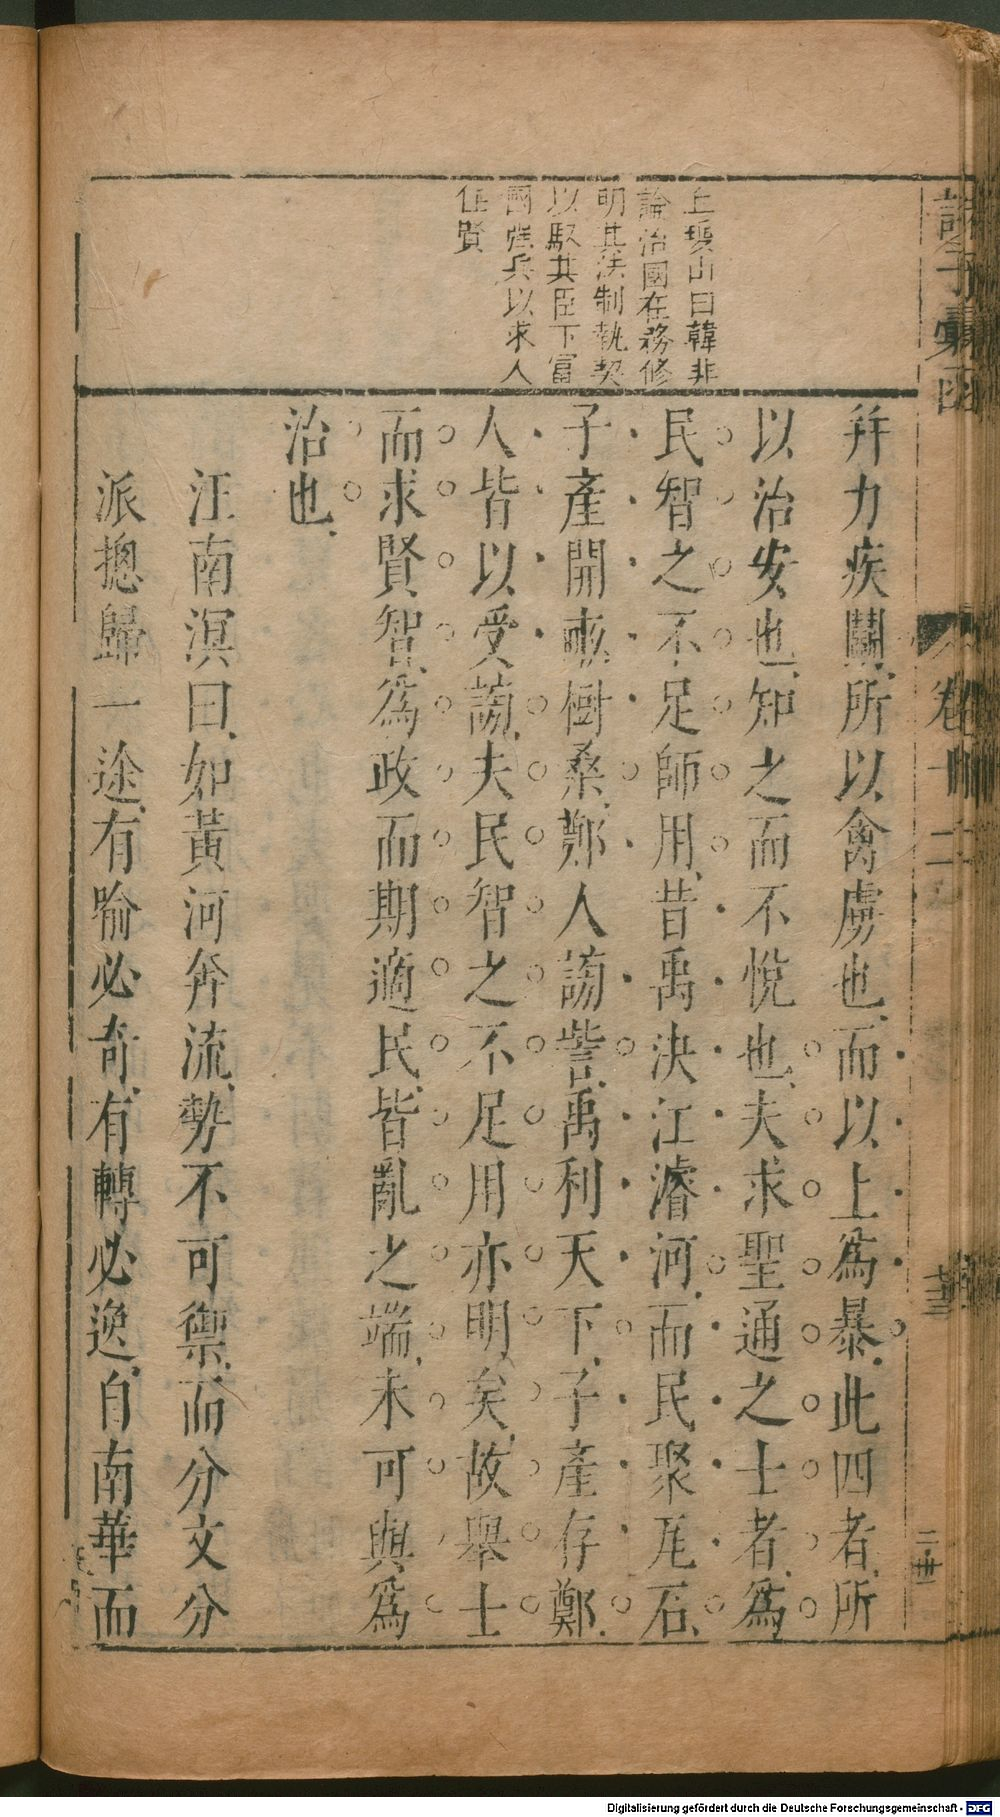 諸子彙函
卷
二
上瓊山曰韓非
論治國在務修
明其法制執契
以馭其臣下富
國彊兵以求人
任賢
并力疾鬭所以禽虜也而以上爲暴此四者所
以治安也知之而不悅也夫求聖通之士者爲
民智之不足師用昔禹決江濬河而民聚瓦石
子產開畝樹桑鄭人謗訾禹利天下子產存鄭
人皆以受謗夫民智之不足用亦明矣故舉士
而求賢智爲政而期適民皆亂之端未可與爲
治也
汪南溟曰如黃河奔流勢不可禦而分文分
派摠歸一途有喻必奇有轉必逸自南華而
Digitalisierung gefördert durch die Deutsche Forschungsgemeinschaft - DFG